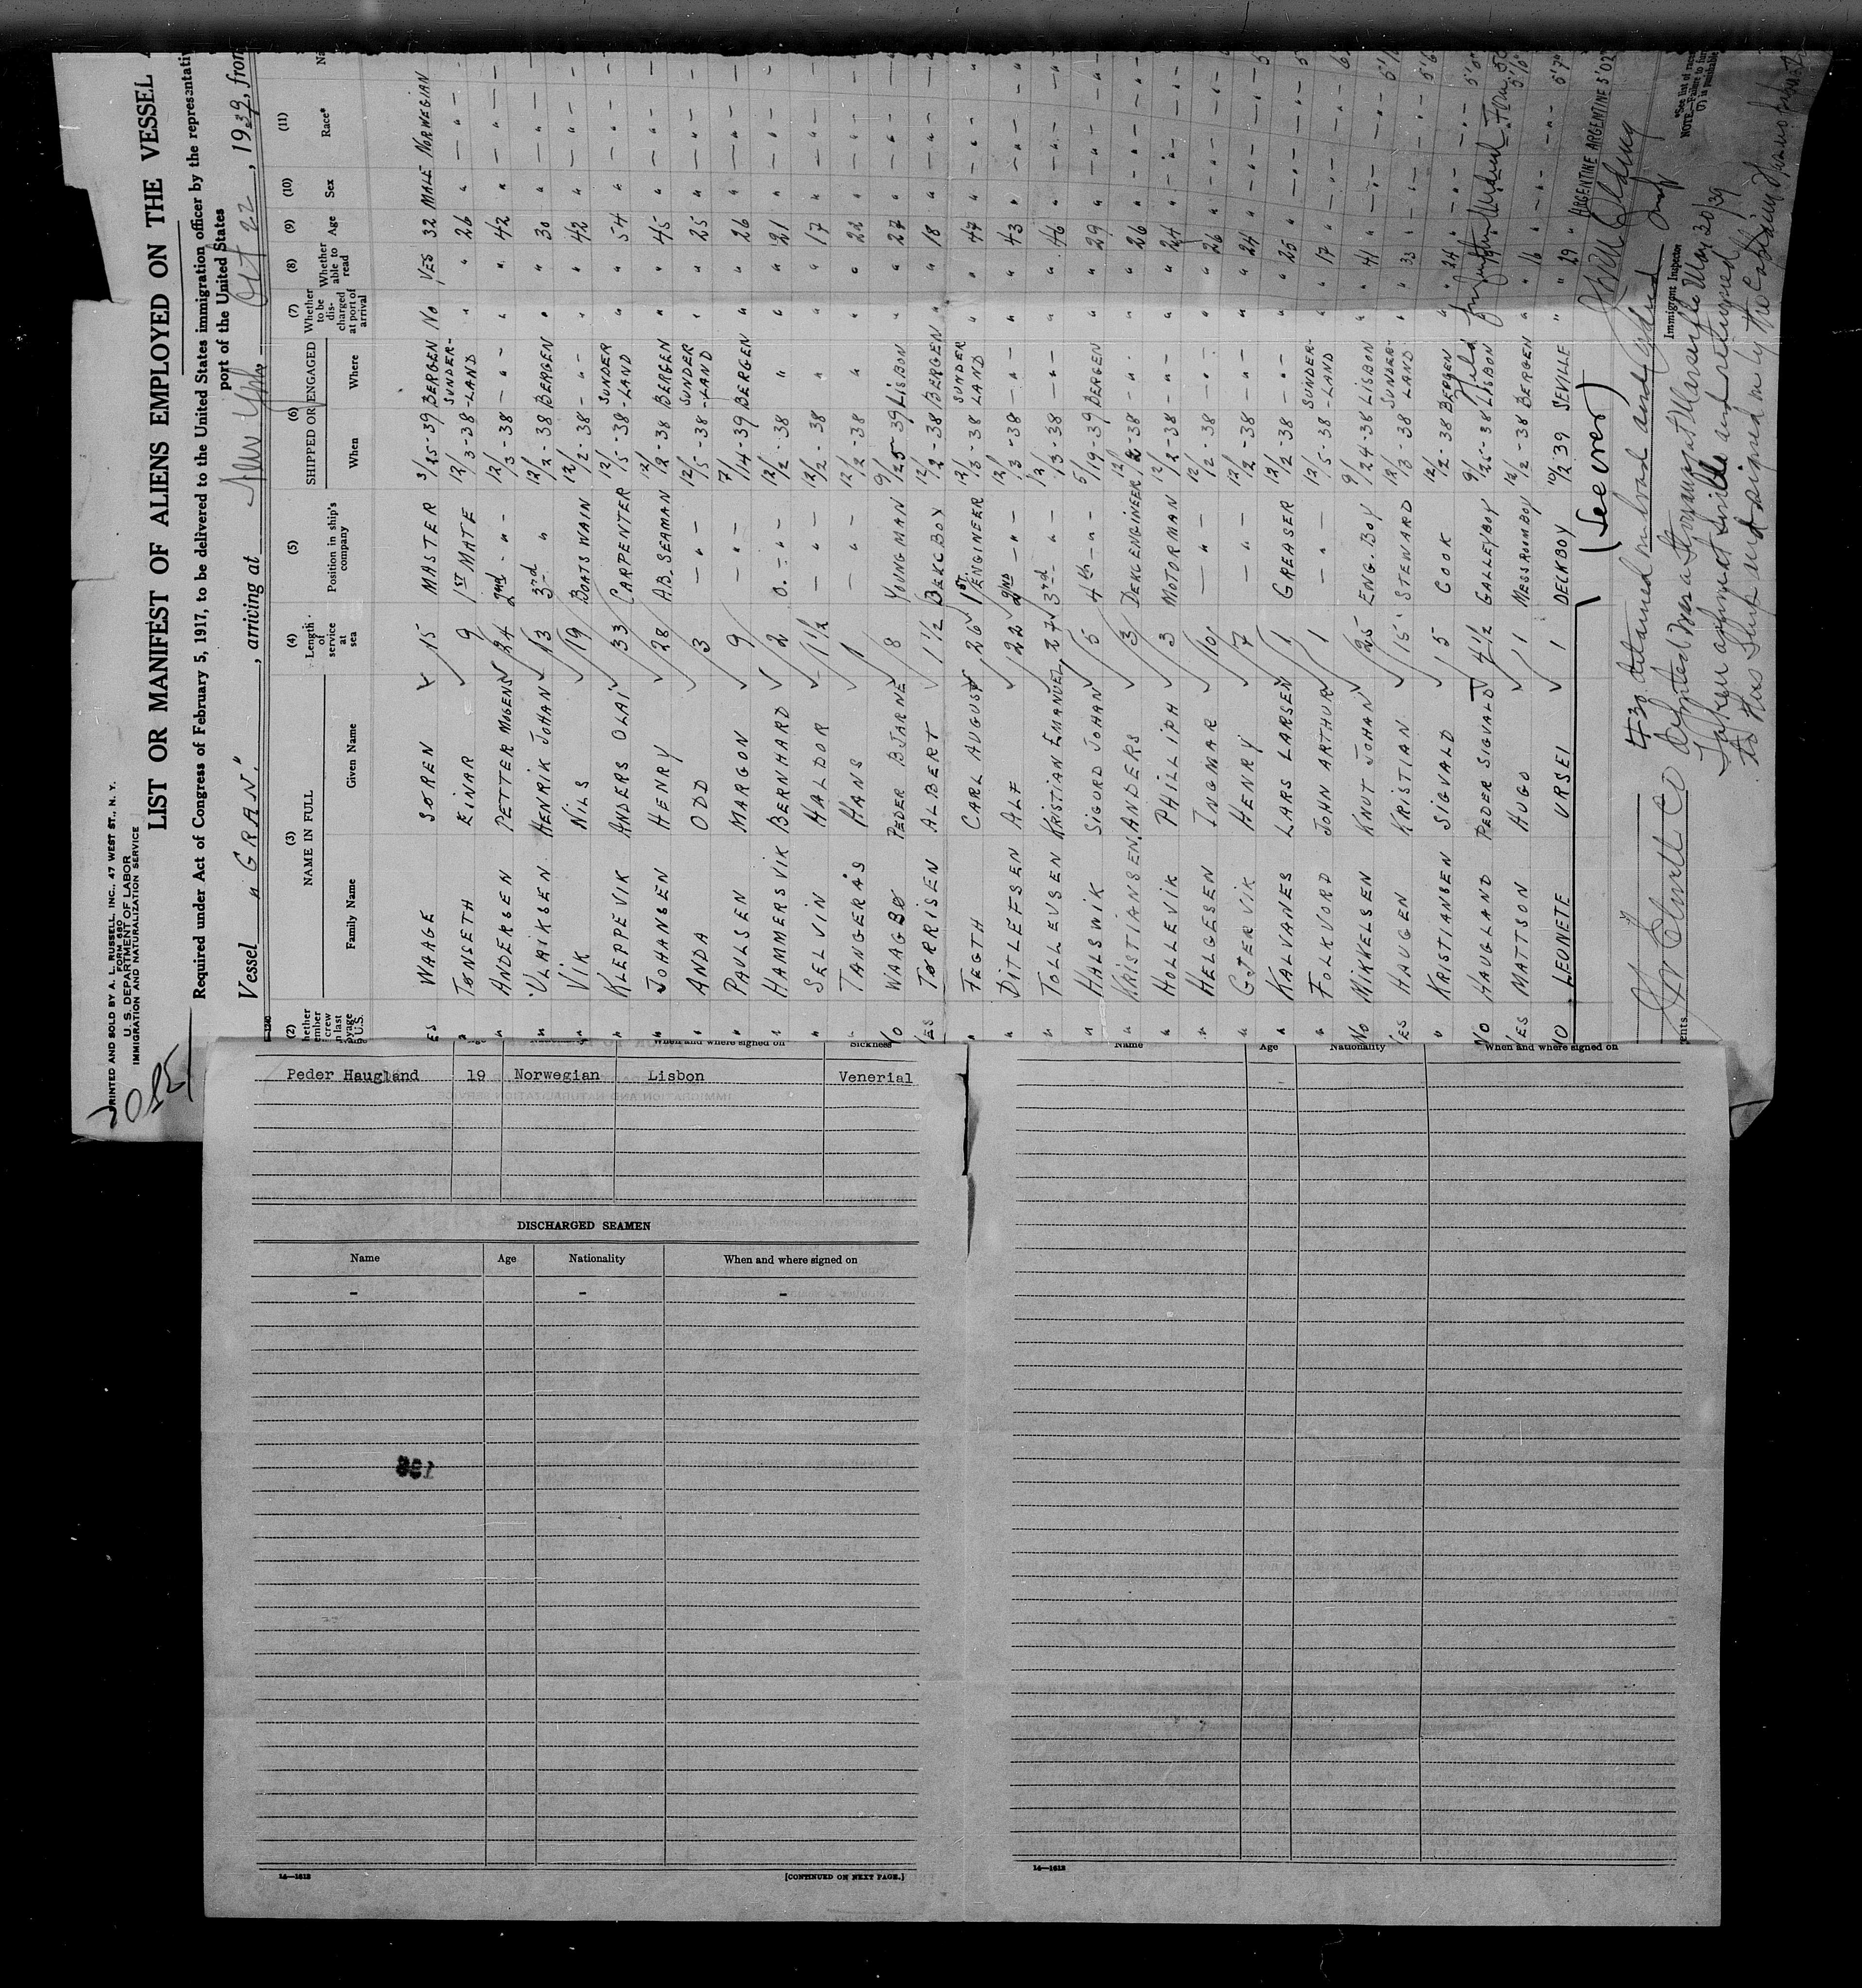 PRINTED AND SOLD BY A. L. RUSSELL, INC., 47 WEST ST., N. Y.
FORM 680
U. S. DEPARTMENT OF LABOR
IMMIGRATION AND NATURALIZATION SERVICE
LIST OR MANIFEST OF ALIENS EMPLOYED ON THE VESSEL
Required under Act of Congress of February 5, 1917, to be delivered to the United States immigration officer by the representati
port of the United States
Vessel "GRAN.", arriving at New York Oct 22, 1939, from
(2) (3) (4) (5) (6) (7) (8) (9) (10) (11)
NAME IN FULL
Family Name Given Name
Length of service at sea
Position in ship's company
SHIPPED OR ENGAGED
When Where
Whether to be discharged at port of arrival
Whether able to read
Age Sex Race*
ES WAAGE SØREN 15 MASTER 3/25-39 BERGEN No YES 32 MALE NORWEGIAN
" TØNSETH EINAR 9 1ST MATE 12/3-38 SUNDER-LAND " " 26 " — " —
" ANDERSEN PETTER MOGENS 24 2nd - " - 12/3-38 — " — " " 42 " — " —
" ULRIKSEN HENRIK JOHAN 13 3rd " 12/2-38 BERGEN " " 30 " — " —
" VIK NILS 19 BOATSWAIN 12/2-38 - " - " " 42 " — " —
" KLEPPEVIK ANDERS OLAI 33 CARPENTER 12/5-38 SUNDER-LAND " " 54 " — " —
" JOHANSEN HENRY 28 A.B. SEAMAN 12/2-38 BERGEN " " 45 " — " —
" ANDA ODD 3 — " — 12/5-38 SUNDER-LAND " " 25 " — " —
" PAULSEN MARGON 9 — " — 7/14-39 BERGEN " " 26 " — " —
" HAMMERSVIK BERNHARD 2 O. - " - 12/2-38 " " " 21 " — " —
" SELVIN HALDOR 1 1/2 — " — 12/2-38 " " " 17 " — " —
" TANGERÅS HANS 1 — " — 12/2-38 " " " 22 " — " —
NO WAAGBØ PEDER BJARNE 8 YOUNGMAN 9/25-39 LISBON " " 27 " — " —
YES TØRRISEN ALBERT 1 1/2 DEKCBOY 12/2-38 BERGEN " " 18 " — " —
" FEGTH CARL AUGUST 26 1ST. ENGINEER 12/3-38 SUNDER LAND " " 47 " — " —
" DITLEFSEN ALF 22 2ND - " - 12/3-38 — " — " " 43 " — " —
" TOLLEVSEN KRISTIAN EMANUEL 27 3rd - " - 12/3-38 — " — " " 46 " — " —
" HALSWIK SIGURD JOHAN 5 4th - " - 5/19-39 BERGEN " " 29 " — " —
" KRISTIANSEN. ANDERS 3 DEKCENGINEER 12/2-38 - " - " " 26 " — " —
" HOLLEVIK PHILLIPH 3 MOTORMAN 12/2-38 - " - " " 24 " — " —
" HELGESEN INGMAR 10 — " — 12/2-38 - " - " " 26 " — " —
" GJERVIK HENRY 7 — " — 12/2-38 - " - " " 24 " — " —
" KALVANES LARS LARSEN 1 GREASER 12/2-38 - " - " " 25 " — " —
" FOLKVORD JOHN ARTHUR 1 — " — 12/5-38 SUNDER-LAND " " 17 " — " —
NO MIKKELSEN KNUT JOHAN 25 ENG. BOY 9/24-38 LISBON " " 41 " — " —
YES HAUGEN KRISTIAN 15 STEWARD 12/3-38 SUNDER-LAND " " 33 " — " —
" KRISTIANSEN SIGVALD 5 COOK 12/2-38 BERGEN " " 24 " — " —
NO HAUGLAND PEDER SIGVALD 4 1/2 GALLEYBOY 9/25-38 LISBON Held
YES MATTSON HUGO 1 MESSROOMBOY 12/2-38 BERGEN " " 16 " — " —
NO LEUNETE URSEI 1 DECKBOY 10/2 39 SEVILLE " " 29 " ARGENTINE ARGENTINE 5'02
(See over)
Immigrant Inspector
*See list of races
#30 detained on board and
to this Ship and signed in by the Captain
Name Age Nationality When and where signed on Sickness
Peder Haugland 19 Norwegian Lisbon Venerial
DISCHARGED SEAMEN
Name Age Nationality When and where signed on
- - -
14—1612
[CONTINUED ON NEXT PAGE.]
Name Age Nationality When and where signed on
14—1612